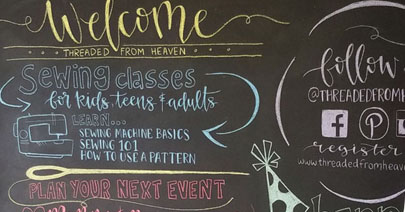 Welcome
THREADED FROM HEAVEN
Sewing classes
for kids, teens, & adults
LEARN...
SEWING MACHINE BASICS
SEWING 101
HOW TO USE A PATTERN
PLAN YOUR NEXT EVENT
follow
@THREADEDFROMH
register
www.threadedfromheave